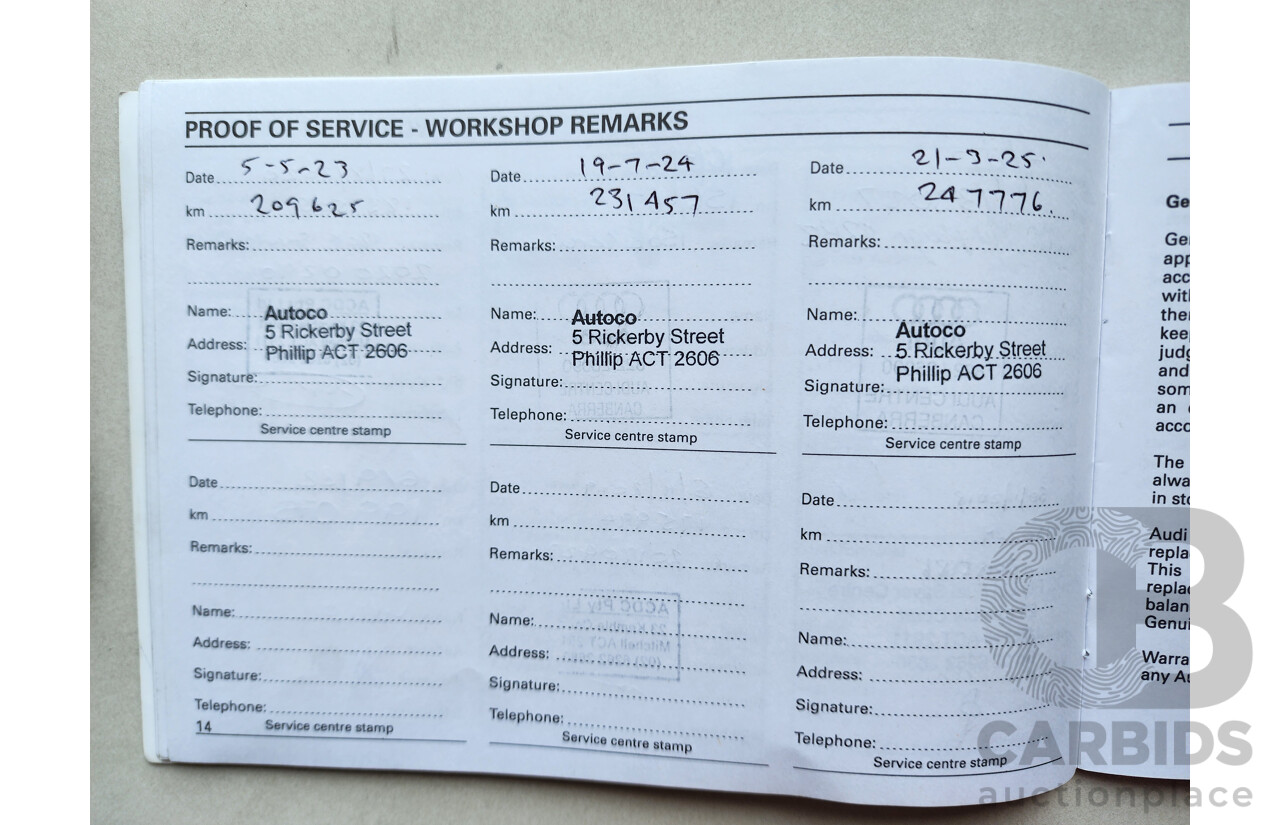 PROOF OF SERVICE - WORKSHOP REMARKS
Date 5-5-23
km 209625
Remarks:
Name: Autoco
5 Rickerby Street
Address: Phillip ACT 2606
Signature:
Telephone:
Service centre stamp
Date 19-7-24
km 231457
Remarks:
Name: Autoco
5 Rickerby Street
Address: Phillip ACT 2606
Signature:
Telephone:
Service centre stamp
Date 21-3-25
km 247776
Remarks:
Name: Autoco
Address: 5 Rickerby Street
Phillip ACT 2606
Signature:
Telephone:
Service centre stamp
Date
km
Remarks:
Name:
Address:
Signature:
Telephone:
14 Service centre stamp
Date
km
Remarks:
Name:
Address:
Signature:
Telephone:
Service centre stamp
Date
km
Remarks:
Name:
Address:
Signature:
Telephone:
Service centre stamp
The
in
Audi
This
any
CARBIDS
auctionplace